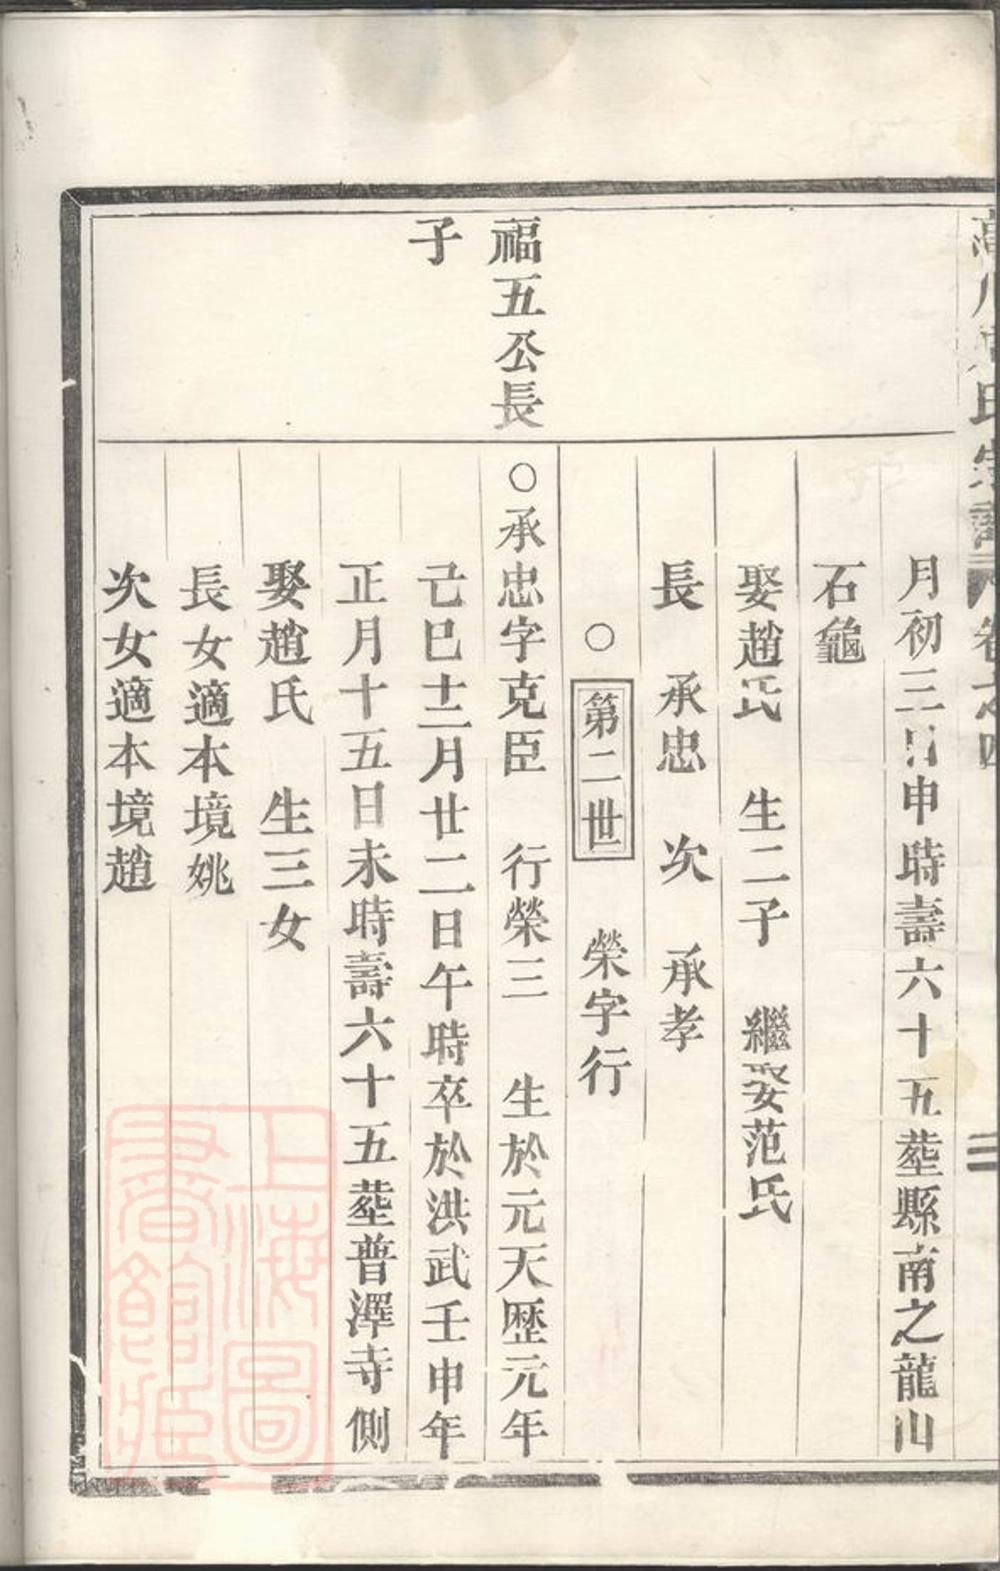 氏宗譜 卷之四 二
月初三日申時壽六十五塟縣南之龍山
石龜
娶趙氏 生二子 繼娶范氏
長 承忠 次 承孝
○ 第二世 榮字行
福五公長
子
○承忠字克臣 行榮三 生於元天歷元年
己巳十二月廿二日午時卒於洪武壬申年
正月十五日未時壽六十五塟普澤寺側
娶趙氏 生三女
長女適本境姚
次女適本境趙
上海圖書館藏